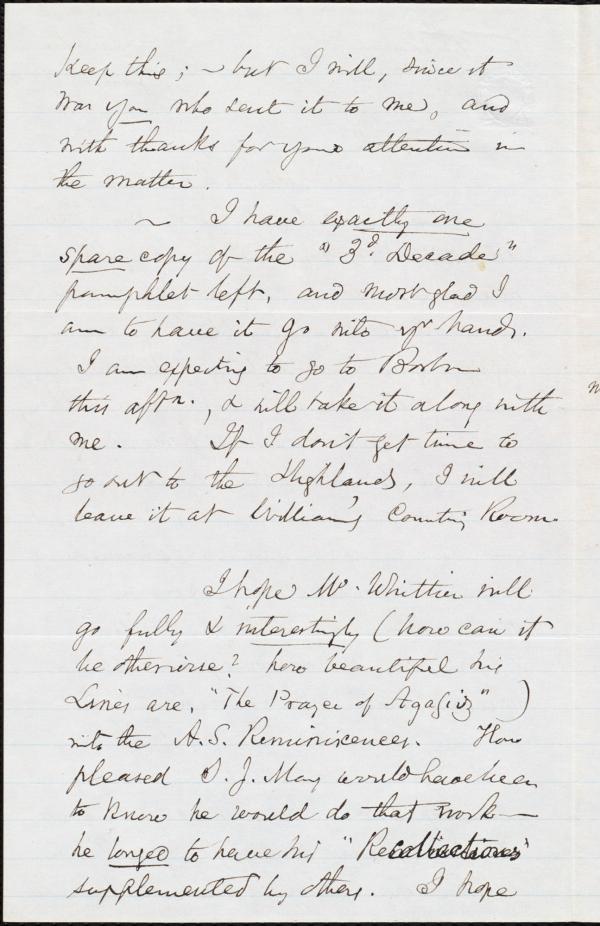 Keep this; ~ but I will, since it
was you who sent it to me, and
with thanks for your attention in
the matter.
~ I have exactly one
spare copy of the "3d. Decade"
pamphlet left, and most glad I
am to have it go into yr hands.
I am expecting to go to Boston
this aftn., & will take it along with
me. If I don't get time to
go out to the Highlands, I will
leave it at William's Counting Room.
I hope Mr. Whittier will
go fully & interestingly (how can it
be otherwise? how beautiful his
Lines are, "The Prayer of Agassiz")
into the A.S. Reminiscences. How
pleased S. J. May would have been
to know he would do that work —
he longed to have his "Recollections"
supplemented by others. I hope